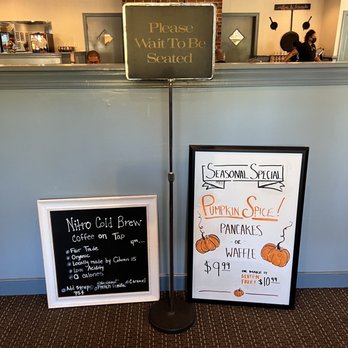 Please
Wait To Be
Seated
Nitro Cold Brew
Coffee on Tap
Fair Trade
Organic
Locally made by
Low Acidity
0 calories
Add Syrups
French Vanilla
Caramel
Seasonal Special
Pumpkin Spice!
Pancakes
- or -
Waffle
$9.99
or make it
Gluten
Free!
$10.99